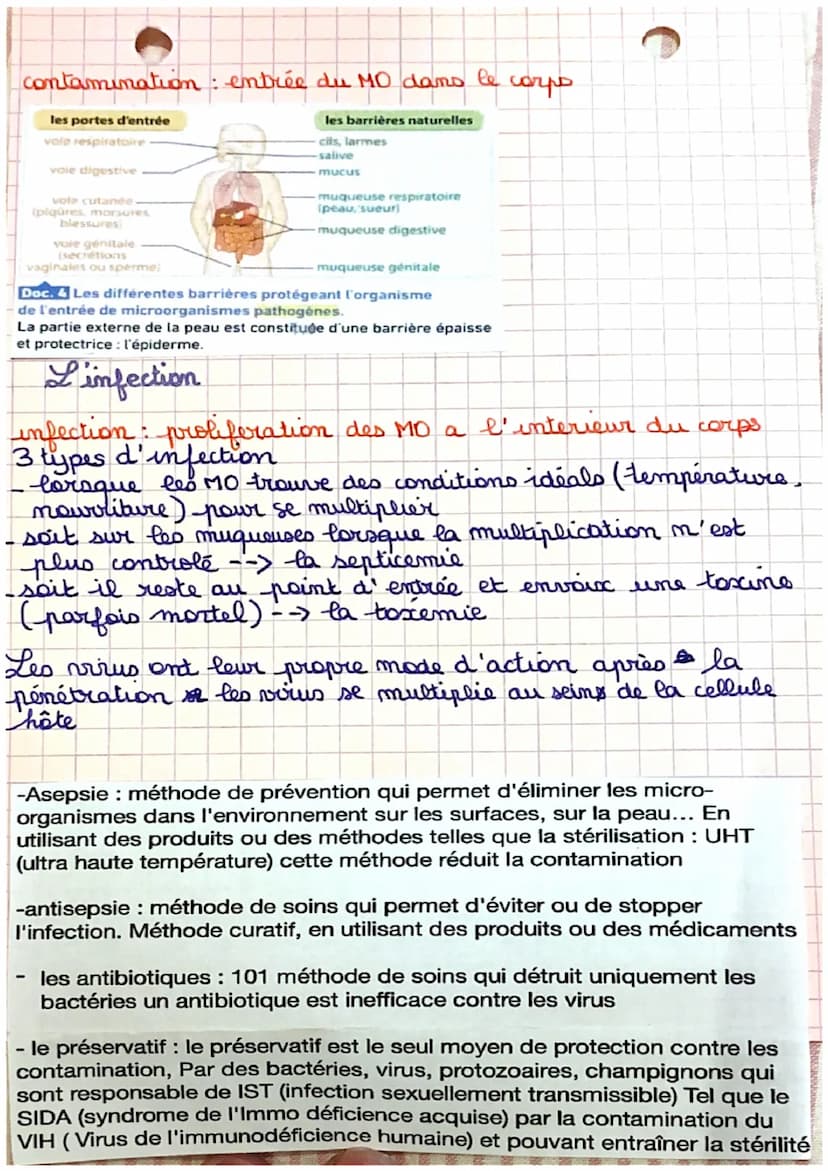 contamination : entrée du MO dans le corps
les portes d'entrée
les barrières naturelles
voie respiratoire
cils, larmes
salive
voie digestive
mucus
voie cutanée
(piqûres, morsures,
blessures)
muqueuse respiratoire
(peau, sueur)
muqueuse digestive
voie génitale
(secrétions
vaginales ou sperme)
muqueuse génitale
Doc. 4 Les différentes barrières protégeant l'organisme
de l'entrée de microorganismes pathogènes.
La partie externe de la peau est constituée d'une barrière épaisse
et protectrice : l'épiderme.
L'infection
infection : proliferation des MO a l'interieur du corps
3 types d'infection
- lorsque les MO trouve des conditions idéals (température,
nourriture) pour se multiplier
- soit sur les muqueuses lorsque la multiplication n'est
plus controlé --> la septicemie
- soit il reste au point d'entrée et envoix une toxine
(parfois mortel) --> la toxemie
Les virus ont leur propre mode d'action après la
pénétration les virus se multiplie au sein de la cellule
hôte
-Asepsie : méthode de prévention qui permet d'éliminer les micro-
organismes dans l'environnement sur les surfaces, sur la peau... En
utilisant des produits ou des méthodes telles que la stérilisation : UHT
(ultra haute température) cette méthode réduit la contamination
-antisepsie : méthode de soins qui permet d'éviter ou de stopper
l'infection. Méthode curatif, en utilisant des produits ou des médicaments
- les antibiotiques : 101 méthode de soins qui détruit uniquement les
bactéries un antibiotique est inefficace contre les virus
- le préservatif : le préservatif est le seul moyen de protection contre les
contamination, Par des bactéries, virus, protozoaires, champignons qui
sont responsable de IST (infection sexuellement transmissible) Tel que le
SIDA (syndrome de l'Immo déficience acquise) par la contamination du
VIH ( Virus de l'immunodéficience humaine) et pouvant entraîner la stérilité